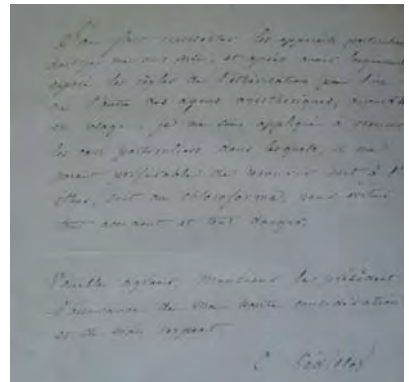 J'ai fait connaître les appareils particuliers
dont je me suis servi, et après avoir
exposé les règles de l'éthérisation par l'un
ou l'autre des agens anesthésiques,
en usage, je me suis appliqué à
les cas particuliers dans lesquels, il me
paraît préférable de recourir soit à l'
éther, soit au chloroforme, pour éviter
tout accident et tout danger.
Veuillez agréer, monsieur le président
l'assurance de ma haute considération
et de mon respect
C. Sédillot